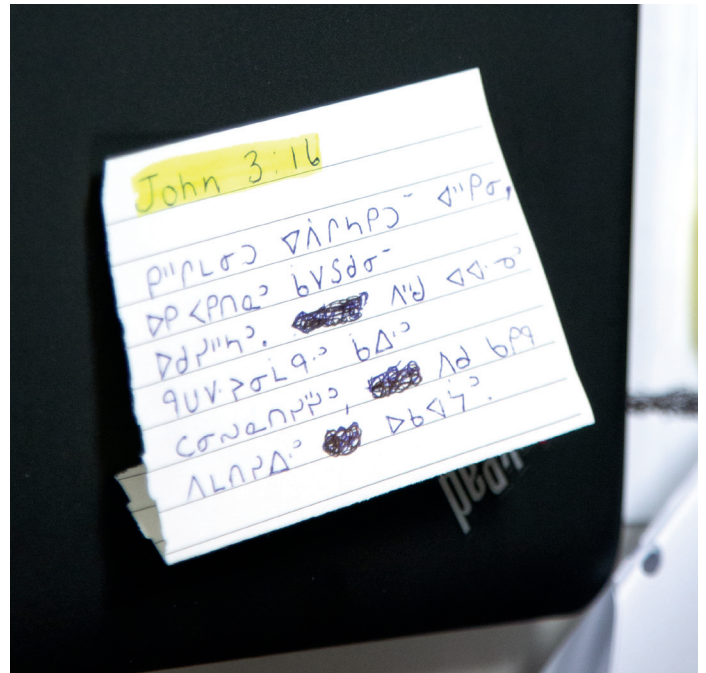 John 3:16
ᑭᐦᒋᒪᓂᑐ ᐁᐲᒋᓴᑭᑐᐨ ᐊᐦᑭᓂ,
ᐅᑭ ᐸᑭᑎᓇᐣ ᑳᐯᔕᑯᓂᐨ
ᐅᑯᓯᐦᓴᐣ. ᐱᐦᑯ ᐊᐊᐧᓀᐣ
ᑫᑌᐯᐧᔨᓂᒪᑫᐧᐣ ᑳᐃᐧᐣ
ᑕᓂᓴᓇᑎᓯᓰᐣ, ᐱᑯ ᑲᑭᑫ
ᐱᒪᑎᓯᐃᐧᐣ ᐅᑲᐊᔮᐣ.